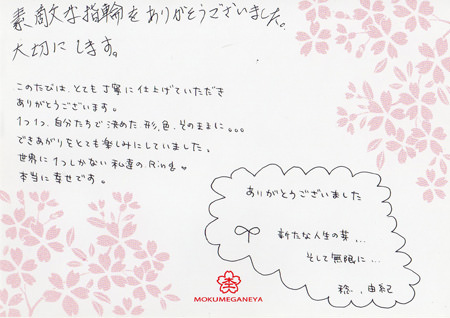 素敵な指輪をありがとうございました。
大切にします。
このたびは、とても丁寧に仕上げていただき
ありがとうございます。
1つ1つ、自分たちで決めた形、色、そのままに。。。
できあがりをとても楽しみにしていました。
世界に1つしかない私達のRing♥
本当に幸せです。
ありがとうございました
新たな人生の芽...
そして無限に...
稔、由紀
MOKUMEGANEYA